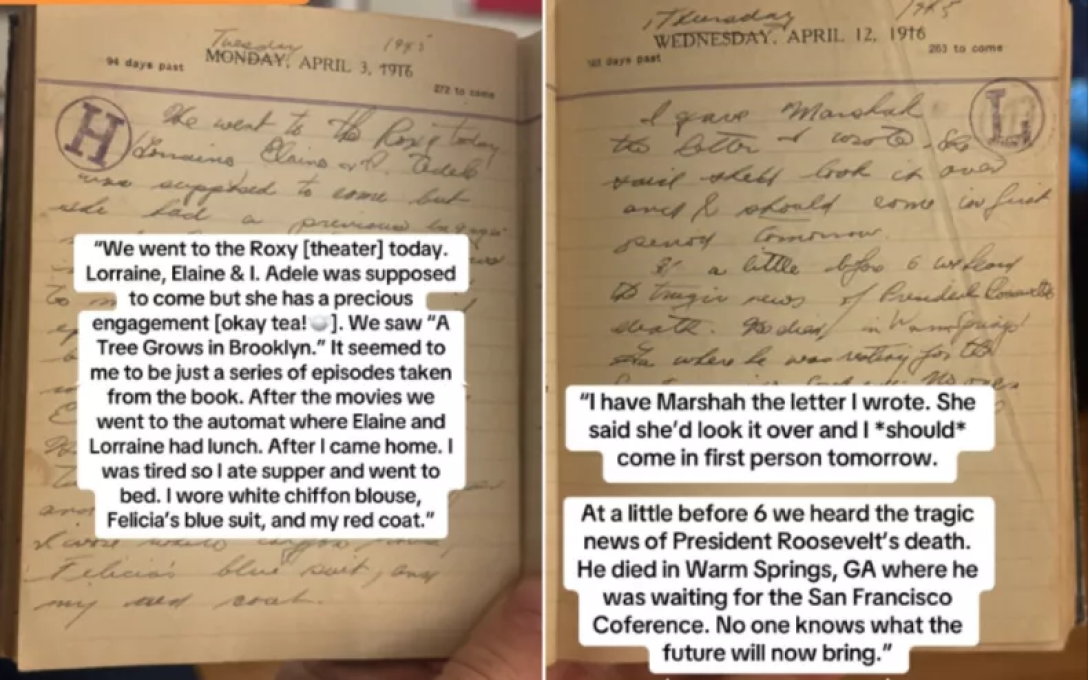 Tuesday 1945
94 days past MONDAY, APRIL 3, 1916
272 to come
H
We went to the Roxy today
Lorraine, Elaine & I. Adele
was supposed to come but
she had a previous engage
“We went to the Roxy [theater] today.
Lorraine, Elaine & I. Adele was supposed
to come but she has a precious
engagement [okay tea!]. We saw “A
Tree Grows in Brooklyn.” It seemed to
me to be just a series of episodes taken
from the book. After the movies we
went to the automat where Elaine and
Lorraine had lunch. After I came home. I
was tired so I ate supper and went to
bed. I wore white chiffon blouse,
Felicia’s blue suit, and my red coat.”
I wore white chiffon
Felicia's blue suit, and
my red coat.
Thursday 1945
WEDNESDAY, APRIL 12, 1916
days past 263 to come
L
I gave Marshah
the letter I wrote. She
said she'll look it over
and I should come in first
period tomorrow.
a little before 6 we heard
the tragic news of President Roosevelt's
death. He died in Warm Springs
Ga where he was resting for the
No one
“I have Marshah the letter I wrote. She
said she’d look it over and I *should*
come in first person tomorrow.
At a little before 6 we heard the tragic
news of President Roosevelt’s death.
He died in Warm Springs, GA where he
was waiting for the San Francisco
Coference. No one knows what the
future will now bring.”